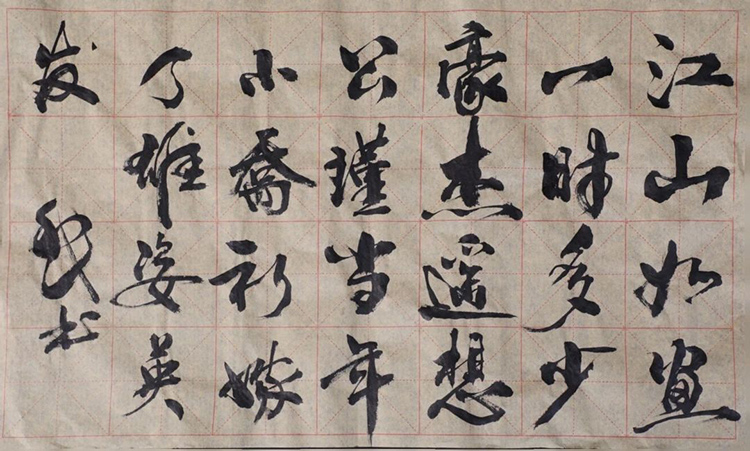 江山如画
一时多少
豪杰遥想
公瑾当年
小喬初嫁
了雄姿英
发